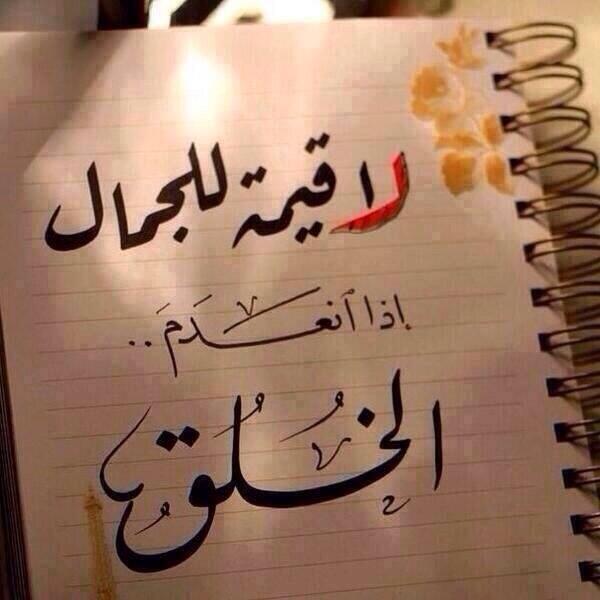 لا قيمة للجمال
إذا ٱنعدَمَ ..
الخُلُق